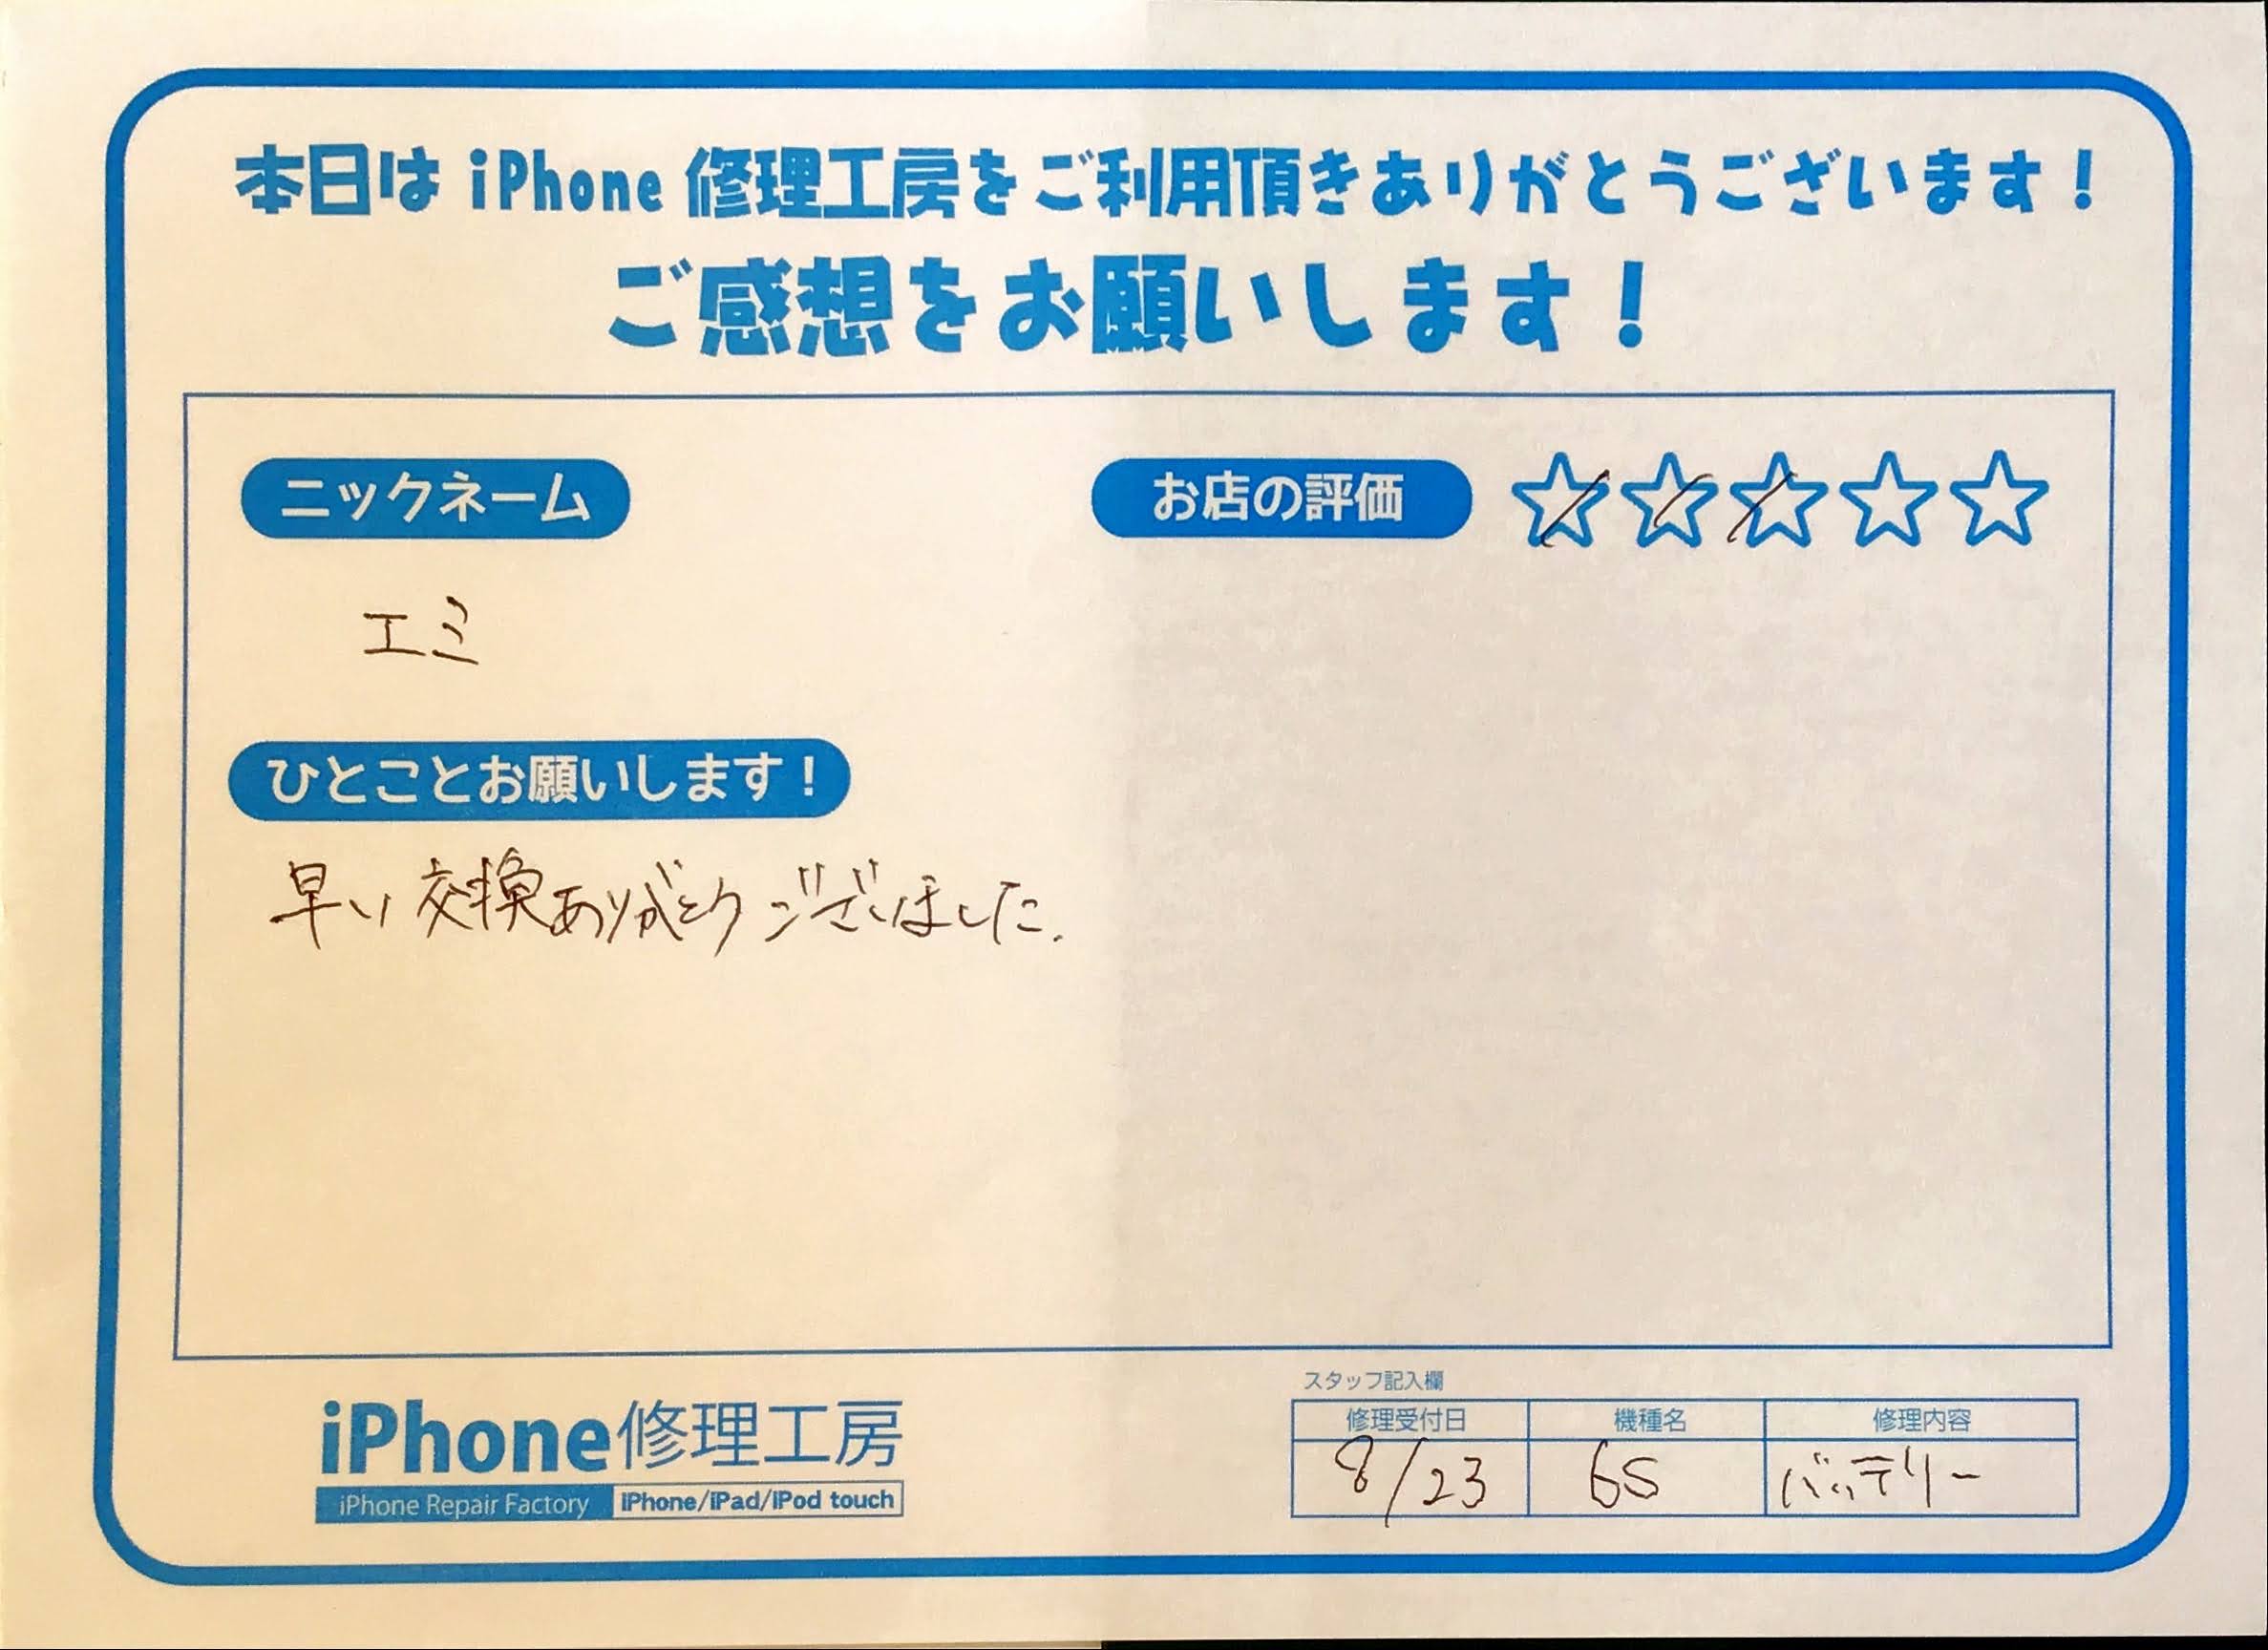 本日は iPhone 修理工房をご利用頂きありがとうございます！
ご感想をお願いします！
ニックネーム
お店の評価 ☆☆☆☆☆
エミ
ひとことお願いします！
早い交換ありがとうございました.
iPhone修理工房
iPhone Repair Factory iPhone/iPad/iPod touch
スタッフ記入欄
修理受付日 機種名 修理内容
8/23 6S バッテリー